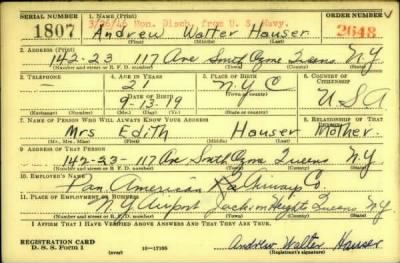 SERIAL NUMBER 1. NAME (Print) ORDER NUMBER
3/26/46 Hon. Disch. from U. S. Navy.
1807 Andrew Walter Hauser 2648
(First) (Middle) (Last)
2. ADDRESS (Print)
142-23 117 Ave South Ozone Queens N.Y
(Number and street or R. F. D. number) (Town) (County) (State)
3. TELEPHONE 4. AGE IN YEARS 5. PLACE OF BIRTH 6. COUNTRY OF CITIZENSHIP
21 N.Y.C
DATE OF BIRTH (Town or county)
9-13-19 U.S.A
(Exchange) (No.) (Mo.) (Day) (Yr.) (State or country)
7. NAME OF PERSON WHO WILL ALWAYS KNOW YOUR ADDRESS 8. RELATIONSHIP OF THAT PERSON
Mrs Edith Hauser Mother.
(Mr., Mrs., Miss) (First) (Middle) (Last)
9. ADDRESS OF THAT PERSON
142-23- 117 Ave South Ozone Queens N.Y
(Number and street or R. F. D. number) (Town) (County) (State)
10. EMPLOYER'S NAME
Pan American Airways Co.
11. PLACE OF EMPLOYMENT OR BUSINESS
N.Y Airport Jackson Heights Queens N.Y.
(Number and street or R. F. D. number) (Town) (County) (State)
I AFFIRM THAT I HAVE VERIFIED ABOVE ANSWERS AND THAT THEY ARE TRUE.
REGISTRATION CARD
D. S. S. Form 1 (over) 16—17105 Andrew Walter Hauser
(Registrant's signature)